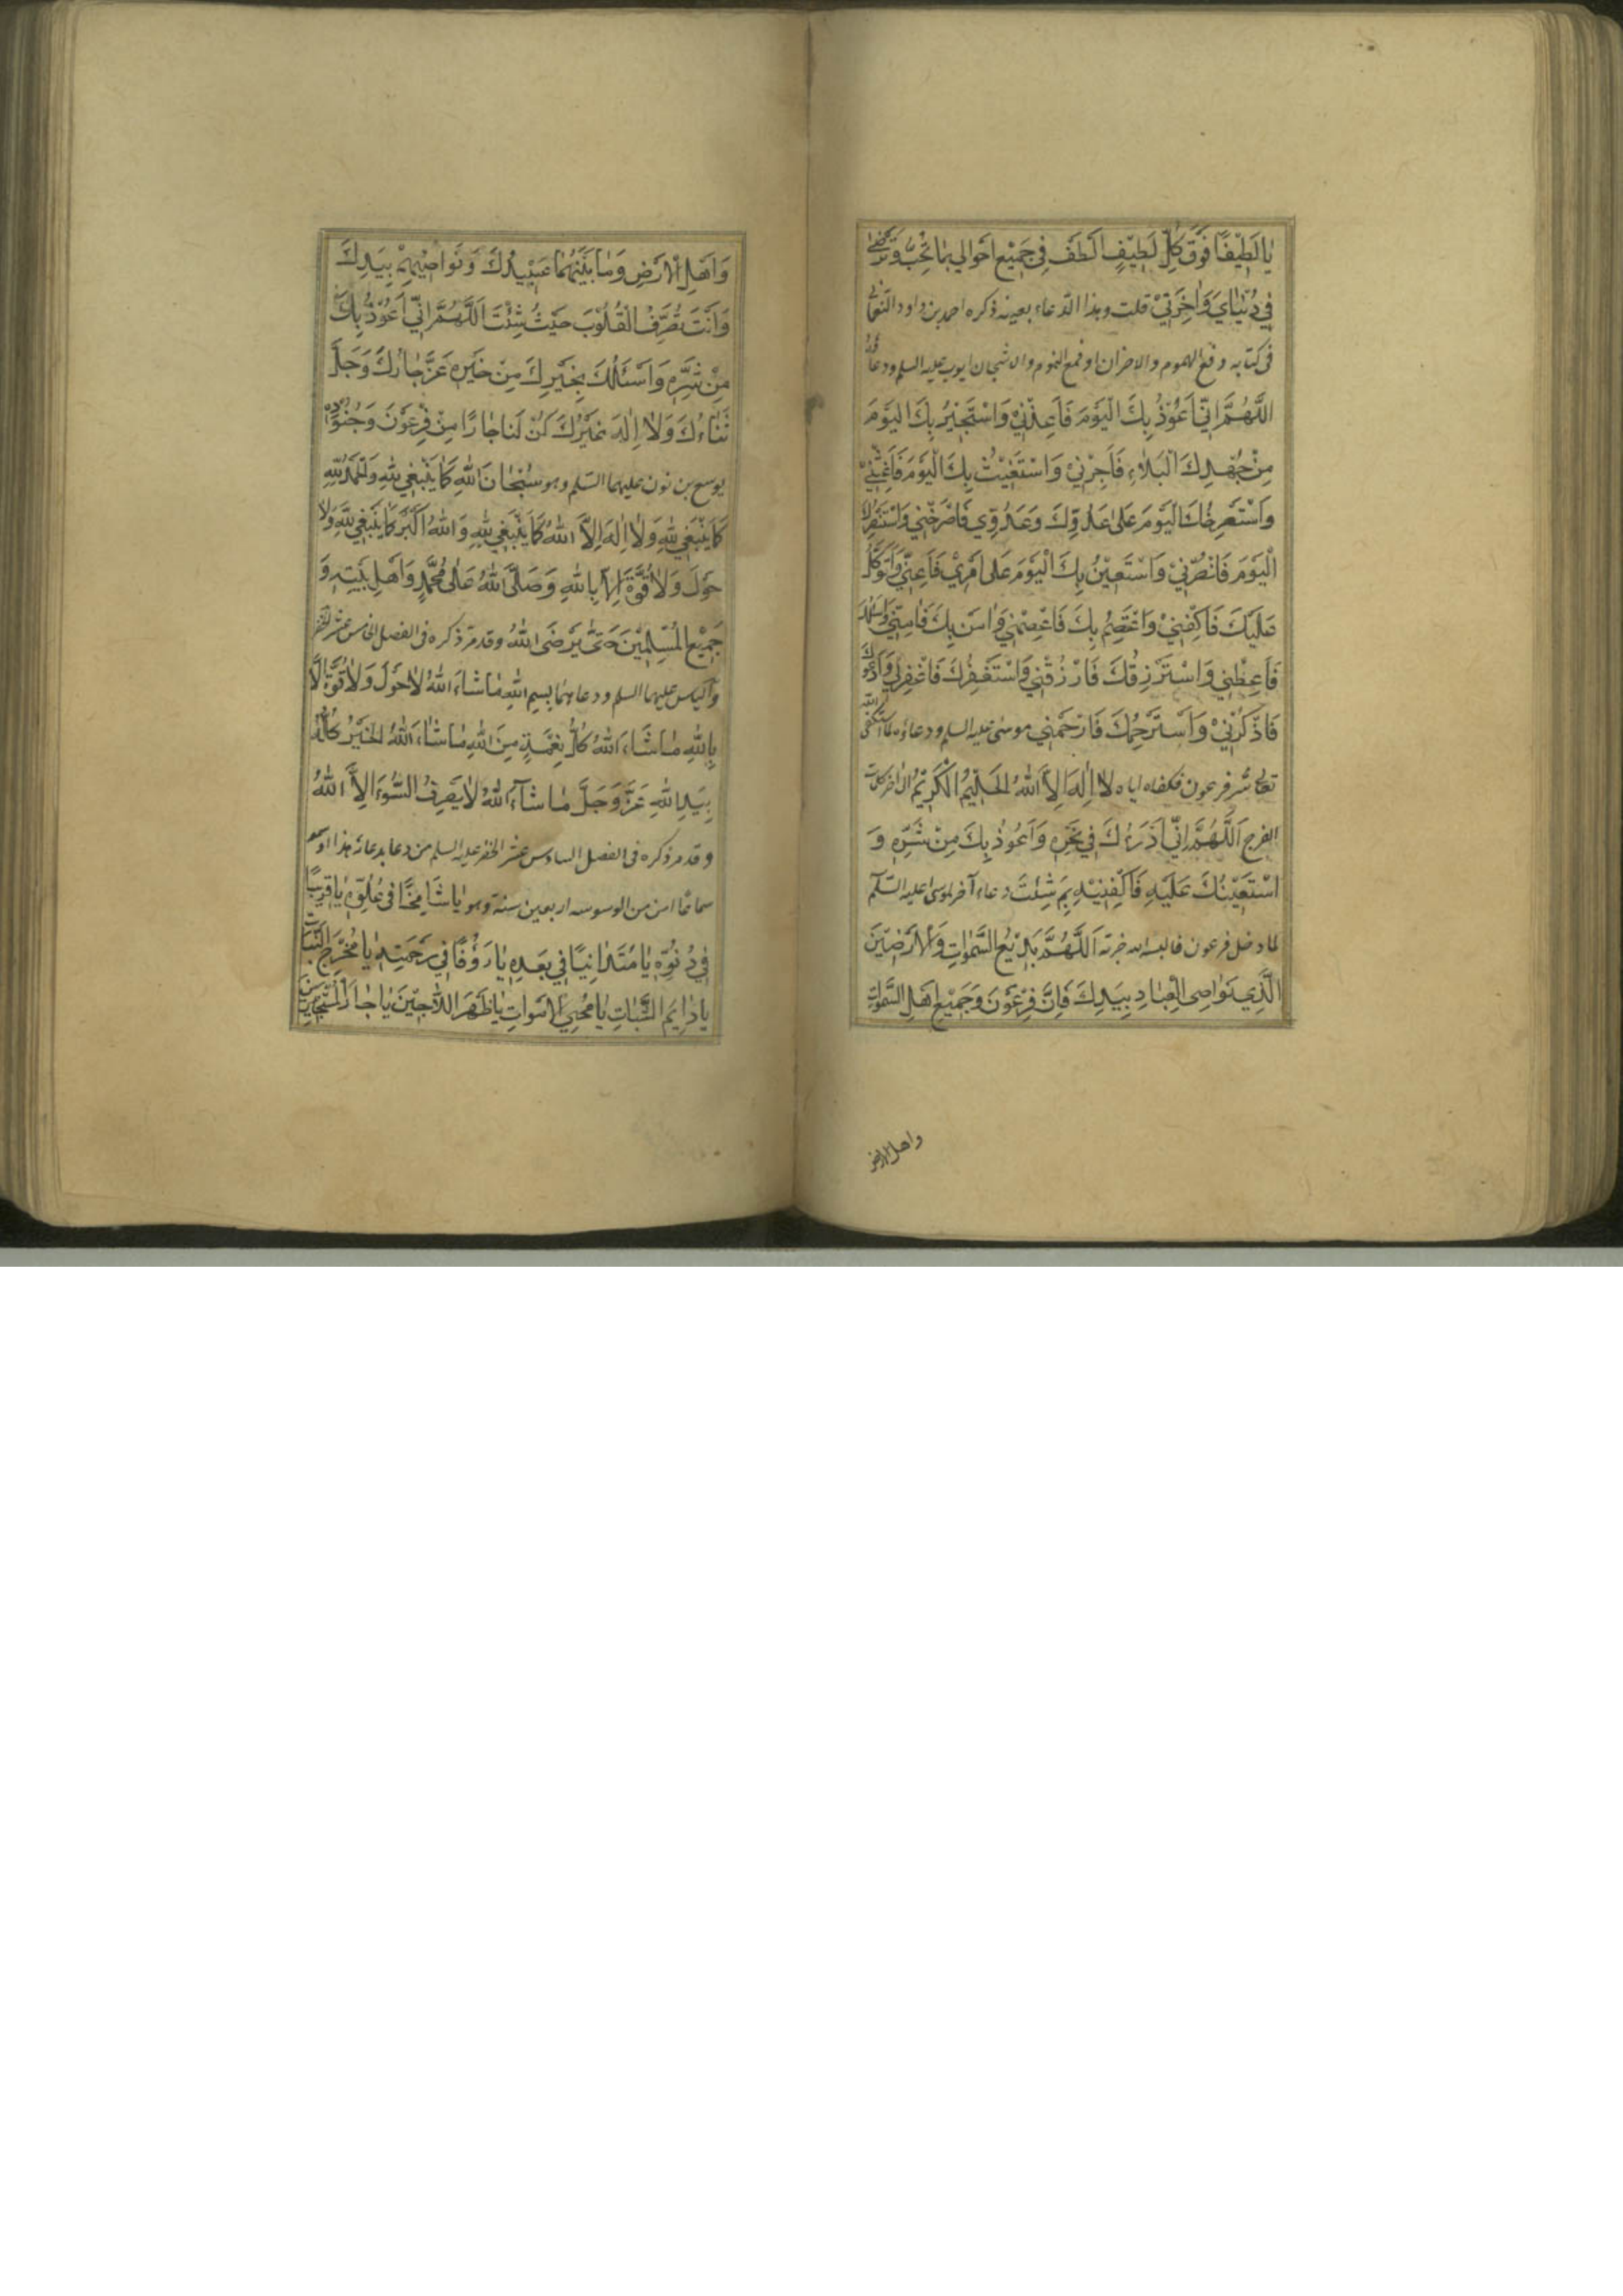 يا لَطِيْفًا فَوْقَ كُلِّ لَطِيْفٍ اَلْطُفْ فِي جَمِيْعِ اَحْوالي بِمَا تُحِبُّ وَتَرْضى
فِي دُنْيَايَ وَاٰخِرَتِيْ قلت وهذا الدّعاء بعينه ذكره احمد بن داود النعماني
في كتابه دفع الهموم والاحزان وقمع الغموم والاشجان ايوب عليه السلم ودعاؤه
اَللَّهُمَّ اِنِّي اَعُوْذُ بِكَ الْيَوْمَ فَاَعِذْنِيْ وَاَسْتَجِيْرُ بِكَ الْيَوْمَ
مِنْ جُهْدِكَ الْبَلَاءِ فَاَجِرْنِيْ وَاَسْتَغِيْثُ بِكَ الْيَوْمَ فَاَغِثْنِيْ
وَاَسْتَصْرِخُكَ الْيَوْمَ عَلَى عَدُوِّكَ وَعَدُوِّي فَاصْرُخْنِي وَاَسْتَنْصِرُكَ
الْيَوْمَ فَانْصُرْنِيْ وَاَسْتَعِيْنُ بِكَ الْيَوْمَ عَلَى اَمْرِيْ فَاَعِنِّي وَاَتَوَكَّلُ
عَلَيْكَ فَاكْفِنِيْ وَاَعْتَصِمُ بِكَ فَاعْصِمْنِي وَاٰمَنُ بِكَ فَاٰمِنِّي وَاَسْئَلُكَ
فَاَعْطِنِي وَاَسْتَرْزِقُكَ فَارْزُقْنِي وَاَسْتَغْفِرُكَ فَاغْفِرْلِي وَاَدْعُوكَ
فَاذْكُرْنِيْ وَاَسْتَرْحِمُكَ فَارْحَمْنِي موسى عليه السلم ودعاؤه لما استكفى الله
تعالى شر فرعون فكفاه اياه لَا اِلٰهَ اِلَّا اللهُ الْحَلِيْمُ الْكَرِيْمُ الى اخر كلمات
الفرج اَللَّهُمَّ اِنِّي اَدْرَءُكَ فِي نَحْرِهِ وَاَعُوذُ بِكَ مِنْ شَرِّهِ وَ
اَسْتَعِيْنُكَ عَلَيْهِ فَاَكْفِنِيْهِ بِمَ شِئْتَ دعاء آخر لموسى عليه السّلم
لما دخل فرعون فالبسه الله اَللَّهُمَّ بَدِيْعَ السَّمٰوَاتِ وَالْاَرَضِيْنَ
الَّذِي نَوَاصِى الْعِبَادِ بِيَدِكَ فَاِنَّ فِرْعَوْنَ وَجَمِيْعَ اَهْلِ السَّمٰوَاتِ
واهل الارض
وَاَهْلِ الْاَرْضِ وَمَا بَيْنَهُمَا عَبِيْدُكَ وَنَوَاصِيْهِمْ بِيَدِكَ
وَاَنْتَ تُصَرِّفُ الْقُلُوْبَ حَيْثُ شِئْتَ اَللَّهُمَّ اِنِّي اَعُوْذُ بِكَ
مِنْ شَرِّهِ وَاَسْئَلُكَ بِخَيْرِكَ مِنْ خَيْرِهِ عَزَّ جَارُكَ وَجَلَّ
ثَنَاءُكَ وَلَا اِلٰهَ غَيْرُكَ كُنْ لَنَا جَارًا مِنْ فِرْعَوْنَ وَجُنُوْدِهِ
يوسع بن نون عليهما السّلم وهو سُبْحَانَ اللهِ كَمَا يَنْبَغِي لِلهِ وَالْحَمْدُ لِلهِ
كَمَا يَنْبَغِي لِلهِ وَلَا اِلٰهَ اِلَّا اللهُ كَمَا يَنْبَغِي لِلهِ وَاللهُ اَكْبَرُ كَمَا يَنْبَغِي لِلهِ وَلَا
حَوْلَ وَلَا قُوَّةَ اِلَّا بِاللهِ وَصَلَّى اللهُ عَلَى مُحَمَّدٍ وَاَهْلِ بَيْتِهِ وَ
جَمِيْعِ الْمُسْلِمِيْنَ حَتَّى يَرْضَى اللهُ وقد مر ذكره في الفصل الخامس عشر الخضر
والياس عليهما السلم ودعاءهما بِسْمِ اللهِ مَا شَاءَ اللهُ لَا حَوْلَ وَلَا قُوَّةَ اِلَّا
بِاللهِ مَا شَاءَ اللهُ كُلُّ نِعْمَةٍ مِنَ اللهِ مَا شَاءَ اللهُ الْخَيْرُ كُلُّهُ
بِيَدِ اللهِ عَزَّ وَجَلَّ مَا شَاءَ اللهُ لَا يَصْرِفُ السُّوْءَ اِلَّا اللهُ
وقد مر ذكره في الفصل السادس عشر الخضر عليه السلم من دعا بدعائه هذا او سمعه
سماعًا امن من الوسوسه اربعين سنة وهو يَا شَامِخًا فِي عُلُوِّهِ يَا قَرِيْبًا
فِي دُنُوِّهِ يَا مُتَدَانِيًا فِي بُعْدِهِ يَا رَؤُفًا فِي رَحْمَتِهِ يَا مُخْرِجَ النَّبَاتِ
يَا دَايِمَ الثَّبَاتِ يَا مُحْيِيَ الْاَمْوَاتِ يَا ظَهْرَ اللَّاجِيْنَ يَا جَارَ الْمُسْتَجِيْرِيْنَ